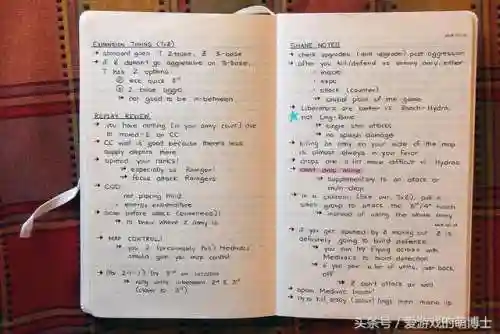 EXPANSION TIMING (TvZ)
→ standard goes T 2-base, Z 3-base
→ if Z doesn't go aggressive on 3-base,
T has 2 options
① eco quick 3rd
② 2 base aggro
→ not good to be in-between
REPLAY REVIEW
→ you have nothing (in you army count) due
to mixed-E on CC
→ CC wall is good because there's less
supply depots there
→ spread your tanks!
→ especially vs Ravager!
→ focus attack Ravagers
→ GGD
not placing third
- energy expenditure
→ scan before attack
→ to know where Z army is
→ MAP CONTROL!
→ you 2 Medivacs
should give you map control
→ 3rd on location
→ rally units inbetween 2nd & 3rd
(closer to 3rd)
SHANE NOTES
→ check upgrades (and upgrade) post aggression
→ after you kill/defend vs enemy army, either
- macro
- expo
- attack (counter)
→ crucial point of the game
→ Liberators are better vs Roach-Hydra,
not Ling-Bane
→ single shot attacks
→ no splash damage
→ killing an army on your side of the map
is almost always in your favor
→ drops are a lot more difficult vs Hydras
→ can't drop alone
→ supplementary to an attack or
multi-drop
→ in a
small group to attack the 3rd/4th hatch
→ instead of using the whole army
→ if you get spotted by Z moving out, Z is
definitely going to build defence
→ you can try flying across with
Medivacs to avoid detection
→ if you see a lot of units, just back
off
→ Z can't attack as well
→ spam Medivac boost
→ try to kill lings then mane is
头条号 / 爱游戏的萌博士